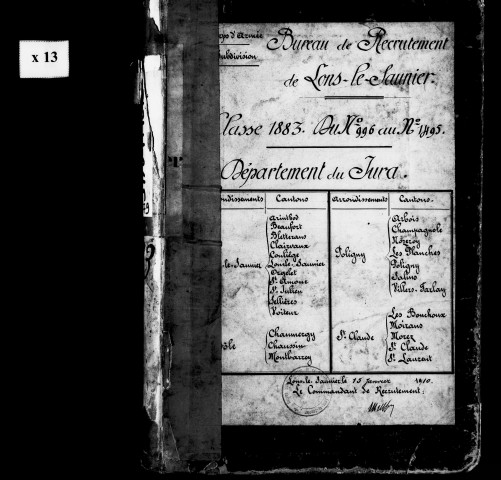 x 13
Corps d'Armée
Subdivision
Bureau de Recrutement
de Lons-le-Saunier.
Classe 1883. Du Nº 996 au Nº 1495.
Département du Jura.
Arrondissements
Cantons
Arinthod
Beaufort
Bletterans
Clairvaux
Conliège
le-Saunier
Lons-le-Saunier
Orgelet
St Amour
St Julien
Sellières
Voiteur
ôle
Chaumergy
Chaussin
Montbarrey
Arrondissements
Cantons.
Poligny
Arbois
Champagnole
Nozeroy
Les Planches
Poligny
Salins
Villers-Farlay
St Claude
Les Bouchoux
Moirans
Morez
St Claude
St Laurent
Lons-le-Saunier le 15 Janvier 1910.
Le Commandant de Recrutement: